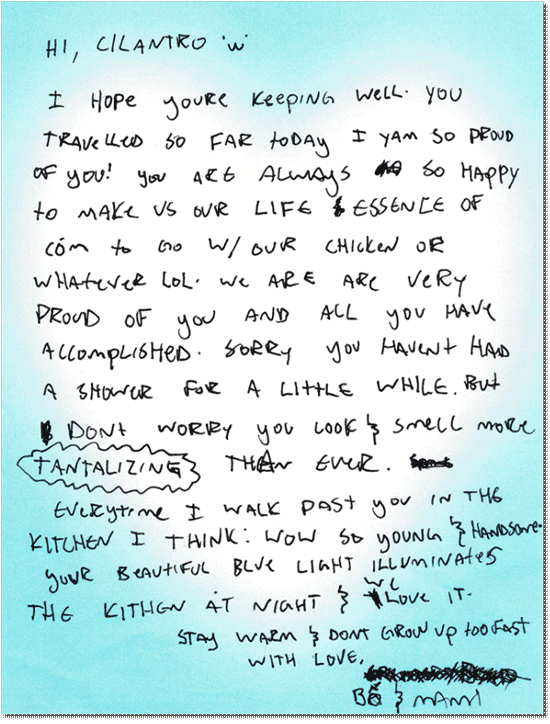 HI, CILANTRO 'w'
I HOPE YOURE KEEPING WELL. YOU
TRAVELLED SO FAR TODAY I YAM SO PROUD
OF YOU! YOU ARE ALWAYS SO HAPPY
TO MAKE US OUR LIFE ESSENCE OF
CƠM TO GO W/ OUR CHICKEN OR
WHATEVER LOL. WE ARE ARE VERY
PROUD OF YOU AND ALL YOU HAVE
ACCOMPLISHED. SORRY YOU HAVENT HAD
A SHOWER FOR A LITTLE WHILE. BUT
DONT WORRY YOU LOOK & SMELL MORE
TANTALIZING THAN EVER.
EVERYTIME I WALK PAST YOU IN THE
KITCHEN I THINK: WOW SO YOUNG & HANDSOME.
YOUR BEAUTIFUL BLUE LIGHT ILLUMINATES
THE KITHEN AT NIGHT & WE LOVE IT.
STAY WARM & DONT GROW UP TOO FAST
WITH LOVE,
& MAMI